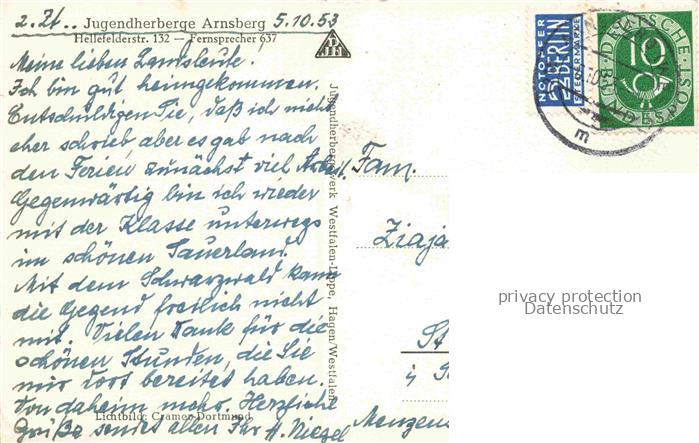 z. Zt... Jugendherberge Arnsberg 5.10.53
Hellefelderstr. 132 — Fernsprecher 637
Meine lieben Landsleute.
Ich bin gut heimgekommen.
Entschuldigen Sie, daß ich nicht
eher schrieb aber es gab nach
den Ferien zunächst viel Arbeit.
Gegenwärtig bin ich wieder
mit der Klasse unterwegs
im schönen Sauerland.
Mit dem Schwarzwald kann
die Gegend freilich nicht
mit. Vielen Dank für die
schönen Stunden, die Sie
mir dort bereitet haben.
Von daheim mehr. Herzliche
Lichtbild: Cramer-Dortmund
Grüße sendet allen Ihr H. Niegel
Jugendherbergswerk Westfalen-Lippe, Hagen/Westfalen
DJH
NOTOPFER
2 BERLIN
STEUERMARKE
DEUTSCHE
BUNDESPOST
10
m
Fam.
Ziaja
St
Menzen
privacy protection
Datenschutz